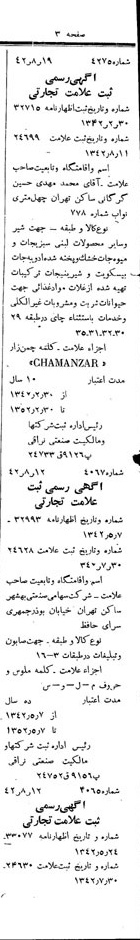 صفحه ۳
شماره ۴۲۷۵ ۱۹ر۸ر۴۲
آگهی رسمی
ثبت علامت تجارتی
شماره و تاریخ ثبت اظهارنامه ۳۲۷۱۵
۳۰ر۲ر۱۳۴۲
شماره و تاریخ ثبت علامت ۲۴۶۹۹
۱۱ر۸ر۱۳۴۲
اسم و اقامتگاه و تابعیت صاحب
علامت ـ آقای محمد مهدی حسین
گرگانی ساکن تهران چهل متری
نواب شماره ۷۷۸
نوع کالا و طبقه ـ جهت شیر
و سایر محصولات لبنی سبزیجات و
میوه جات خشك و پخته شده ادویه جات
بیسکویت و شیرینیجات ترکیبات
تهیه شده از غلات مواد غذائی جهت
حیوانات نوشابه و مشروبات غیر الکلی
و خدمات باستثناء چای در طبقه ۲۹
۳۵،۳۱،۳۲،۳۰
اجزاء علامت ـ کلمه چمن زار
«CHAMANZAR»
مدت اعتبار ۱۰ سال
از ۳۰ر۲ر۱۳۴۲
تا ۳۰ر۲ر۱۳۵۲
رئیس اداره ثبت شرکتها
و مالکیت صنعتی نراقی
پ۹۱۲۶ ق۲۴۷۳۳
شماره ۴۰۶۷ ۱۲ر۸ر۴۲
آگهی رسمی ثبت
علامت تجارتی
شماره و تاریخ اظهارنامه ۳۲۹۹۳ـ
۷ر۵ر۱۳۴۲
شماره و تاریخ ثبت علامت ۲۴۶۲۸
۳۰ر۷ر۴۲
اسم و اقامتگاه و تابعیت صاحب
علامت ـ شرکت سهامی صنعتی بهشهر
ساکن تهران خیابان بوذرجمهری
سرای حافظ
نوع کالا و طبقه ـ جهت صابون
و تبلیغات در طبقات ۳ـ۱۶
اجزاء علامت ـ کلمه ملوس و
حروف م ـ ل ـ و ـ س
مدت اعتبار ده سال
از ۷ر۵ر۱۳۴۲
تا ۷ر۵ر۱۳۵۲
رئیس اداره ثبت شرکتها و
مالکیت صنعتی نراقی
پ۹۱۵۶ ق۲۴۷۵۲
شماره ۴۰۶۵ ۱۲ر۸ر۴۲
آگهی رسمی
ثبت علامت تجارتی
شماره و تاریخ اظهارنامه ۳۳۰۷۷ـ
۲۴ر۵ر۱۳۴۲
شماره و تاریخ ثبت علامت ۲۴۶۳۰ـ
۳۰ر۷ر۱۳۴۲